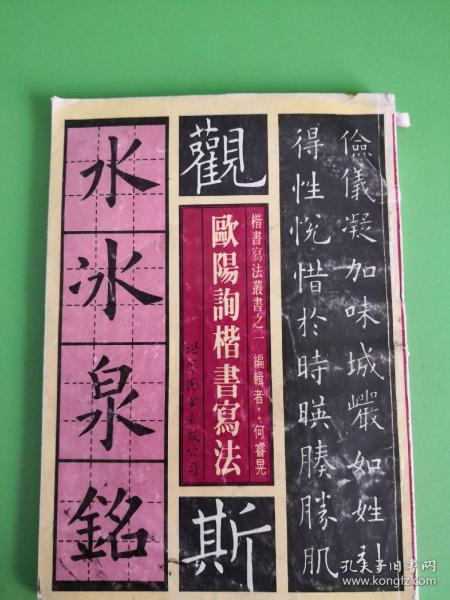 儉儀凝加味城嚴如姓
得性悅惜於時暎腠勝肌
觀
楷書寫法叢書之一 編輯者:何睿晃
歐陽詢楷書寫法
斯
水冰泉銘
孔夫子旧书网